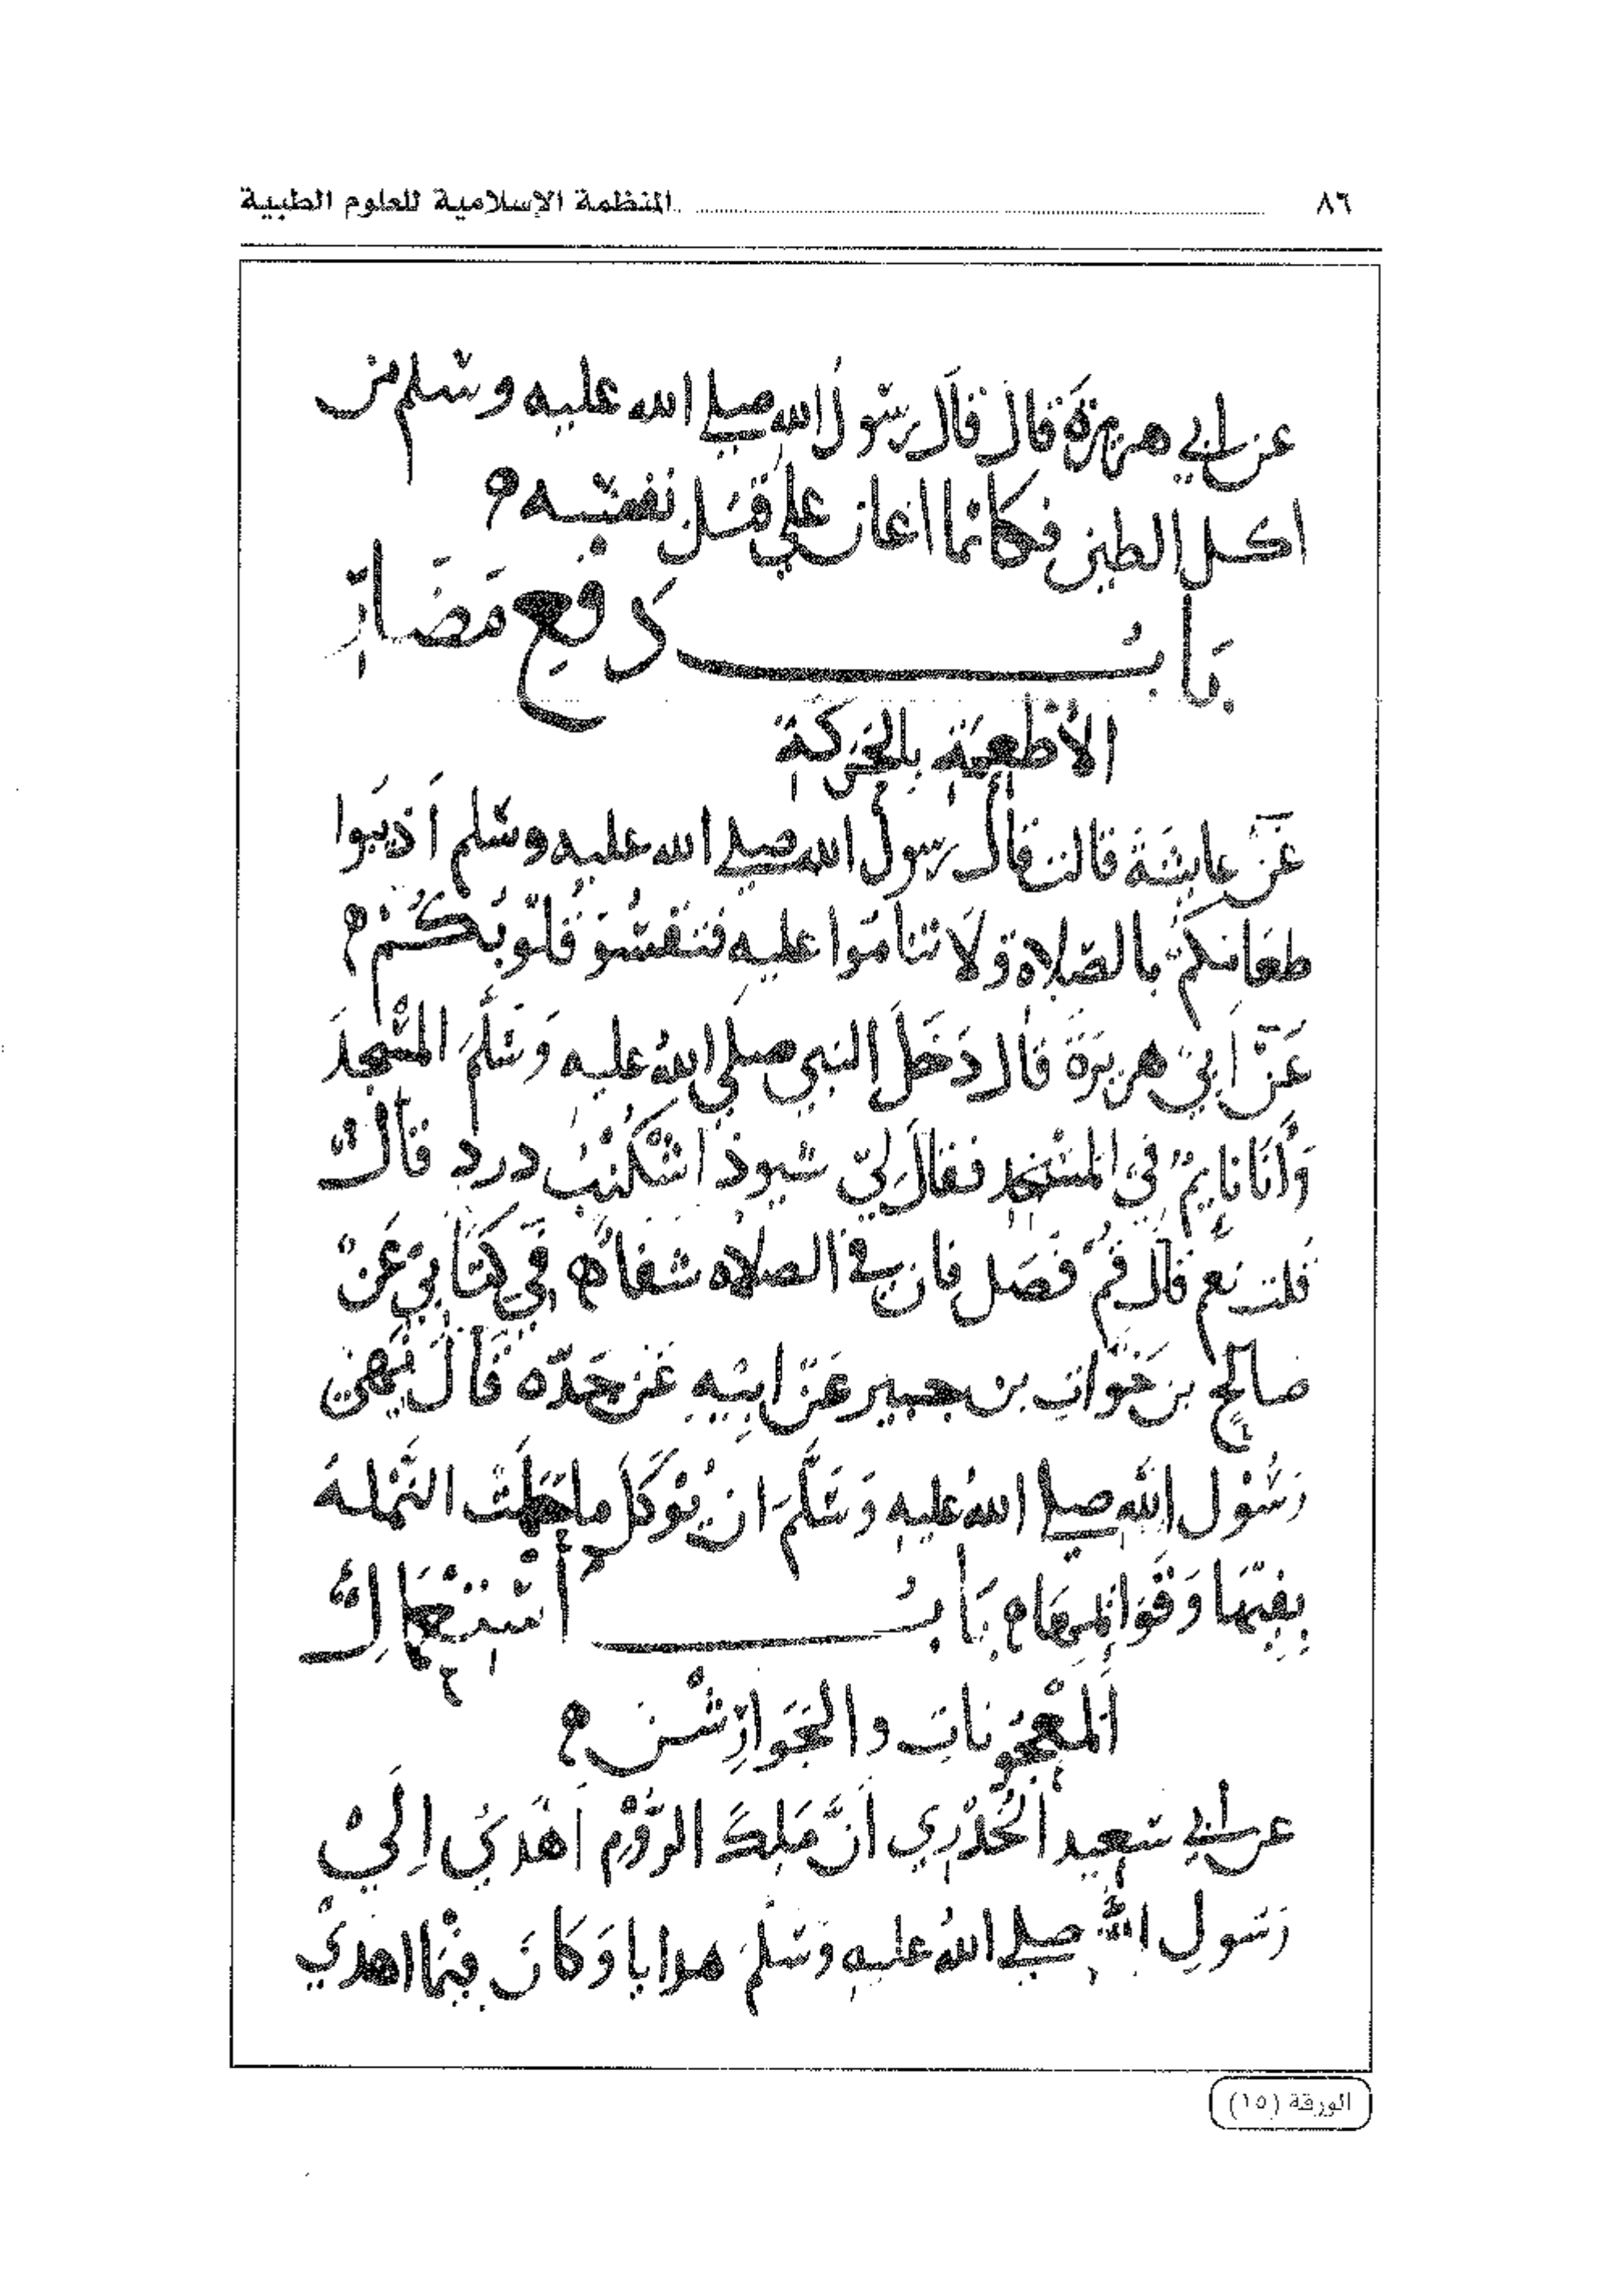 ٨٦ المنظمة الإسلامية للعلوم الطبية
عن ابي هريرة قال قال رسول الله صلى الله عليه وسلم من
اكل الطين فكانما اعان على قتل نفسه
باب دفع مضار
الأطعمة بالحركة
عن عايشة قالت قال رسول الله صلى الله عليه وسلم اذيبوا
طعامكم بالصلاة ولا تناموا عليه فتقسو قلوبكم
عن ابي هريرة قال دخل النبي صلى الله عليه وسلم المسجد
وأنا نايم في المسجد فقال لي اشكنب درد قال
قلت نعم قال قم فصل فان في الصلاة شفا في كتابي عن
صالح بن خوات بن جبير عن ابيه عن جده قال نهى
رسول الله صلى الله عليه وسلم ان يؤكل ما حملت النملة
بفيها وقوائمها باب استعمال
المعجونات والجوارشن
عن ابي سعيد الخدري أن ملك الروم أهدي إلى
رسول الله صلى الله عليه وسلم هدايا وكان فيما اهدي
الورقة (١٥)